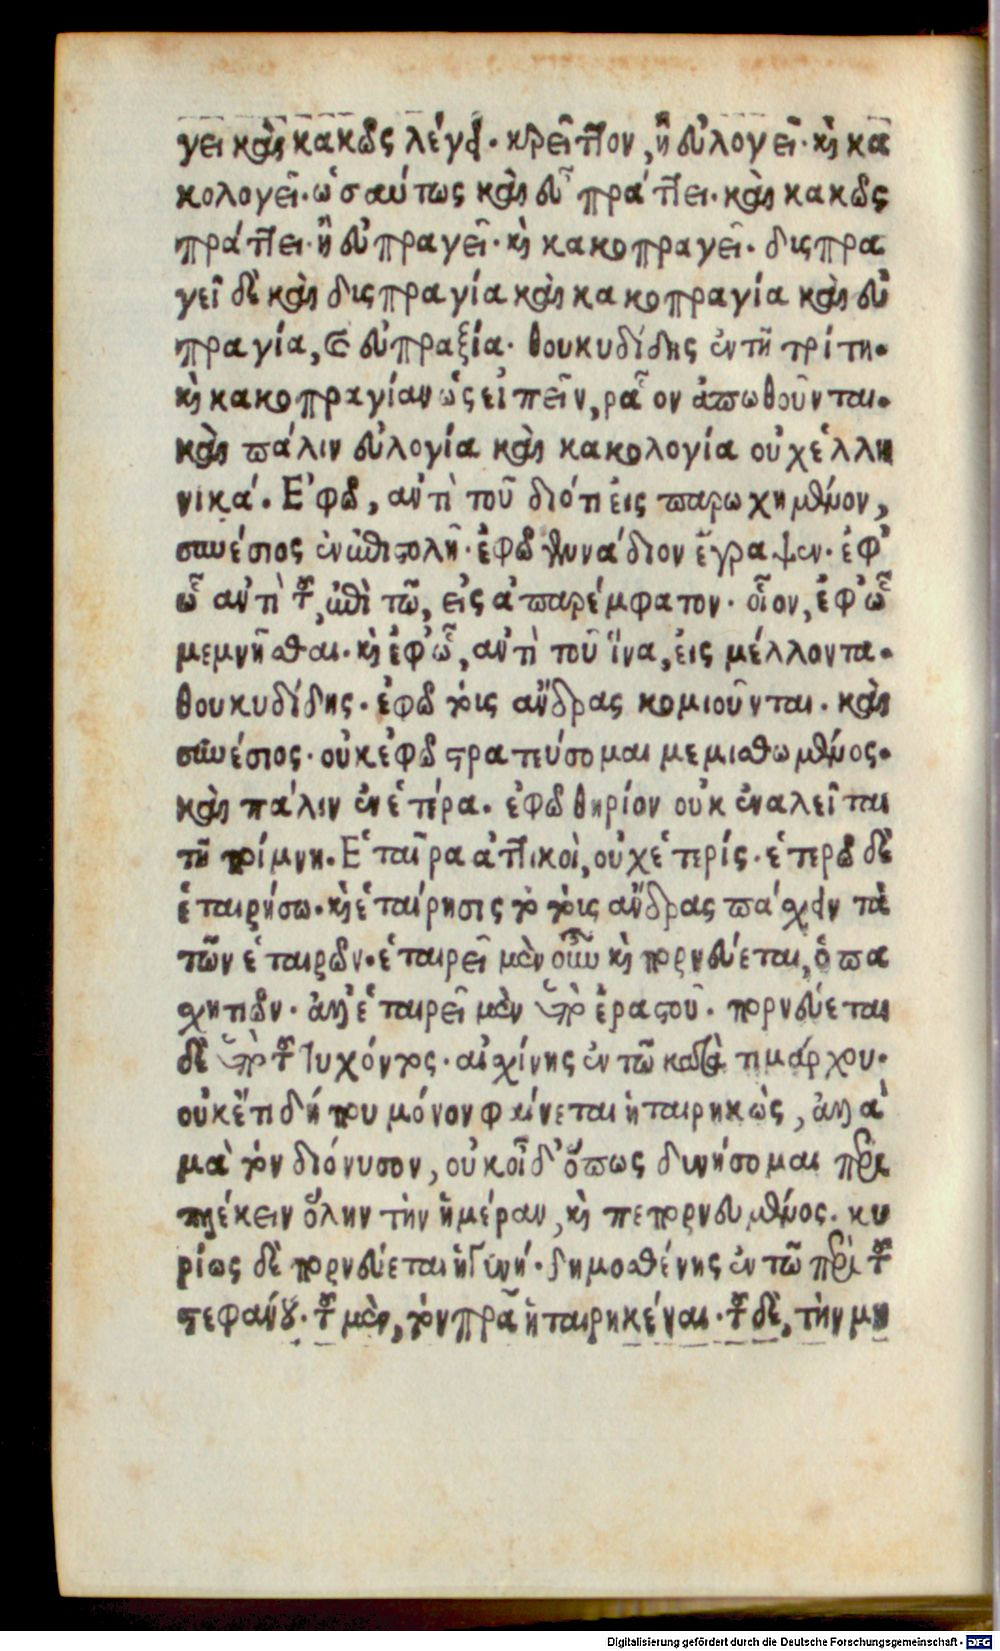 γει καὶ κακῶς λέγει· κρεῖττον, ἢ εὐλογεῖ· κỳ κα
κολογεῖ· ὡσαύτως καὶ εὖ πράττει· καὶ κακῶς
πράττει· ἢ εὐπραγεῖ· κỳ κακοπραγεῖ· δισπρα
γεῖ δὲ καὶ δισπραγία καὶ κακοπραγία καὶ εὐ
πραγία, καὶ εὐπραξία· θουκυδίδης ἐν τῆ τρίτη·
κỳ κακοπραγίαν ὡς εἰπεῖν, ρᾶον ἀπωθοῦνται·
καὶ πάλιν εὐλογία καὶ κακολογία οὐχ ἑλλη
νικά. Ἐφῶ, αντὶ τοῦ διότι εἰς παρωχημένον,
συνέσιος ἐν ἐπιστολῆ· ἐφῶ γενάδιον ἔγραψεν· ἐφ'
ὧ αντὶ τοῦ, ἐπὶ τῶ, εἰς ἀπαρέμφατον· οἷον, ἐφ' ὧ
μεμνῆσθαι· κỳ ἐφ' ὧ, αντὶ τοῦ ἵνα, εἰς μέλλοντα·
θουκυδίδης· ἐφῶ τοὺς ἄνδρας κομιοῦνται· καὶ
συνέσιος· οὐκ ἐφῶ στρατεύσομαι μεμισθωμένος·
καὶ πάλιν ἐν ἑτέρα· ἐφῶ θηρίον οὐκ ἐναλεῖται
τῆ πρίμνη. Ἑταῖρα ἀττικοὶ, οὐχ ἑτερίς· ἑτερῶ δὲ
ἑταιρήσω· κỳ ἑταίρησις τὸ τοὺς ἄνδρας πάσχειν τὰ
τῶν ἑταιρῶν· ἑταιρεῖ μὲν οὖν κỳ πορνεύεται, ὁ πα
σχητιῶν· ἀλλ' ἑταιρεῖ μὲν ὑπὸ ἐραστοῦ· πορνεύεται
δὲ ὑπὸ τοῦ τυχόντος· αἰσχίνης ἐν τῶ κατὰ τιμάρχου·
οὐκέτι δή που μόνον φαίνεται ἡταιρηκὼς, ἀλλὰ
μὰ τὸν διόνυσον, οὐκ οἶδ' ὅπως δυνήσομαι περι
πλέκειν ὅλην τὴν ἡμέραν, κỳ πεπορνευμένος. κυ
ρίως δὲ πορνεύεται ἡ γυνή· δημοσθένης ἐν τῶ περὶ τοῦ
στεφάνου· τοῦ μὲν, τὸν πρᾶ ἡταιρηκέναι· τοῦ δὲ, τὴν μη
Digitalisierung gefördert durch die Deutsche Forschungsgemeinschaft - DFG